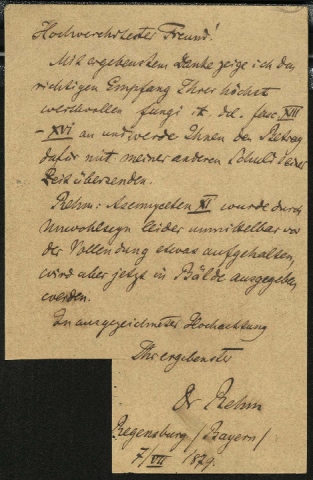 Hochverehrtester Freund!
Mit ergebenstem Danke zeige ich den
richtigen Empfang Ihrer höchst
werthvollen fungi it. del. fasc XIII
– XVI an und werde Ihnen den Betrag
dafür mit meiner anderen Schuld seiner
Zeit übersenden.
Rehm: Ascomyceten XI wurde durch
Unwohlseyn leider unmittelbar vor
der Vollendung etwas aufgehalten,
wird aber jetzt in Bälde ausgegeben
werden.
In ausgezeichneter Hochachtung
Ihr ergebenster
Dr Rehm
Regensburg / Bayern /
7/VII /1879.